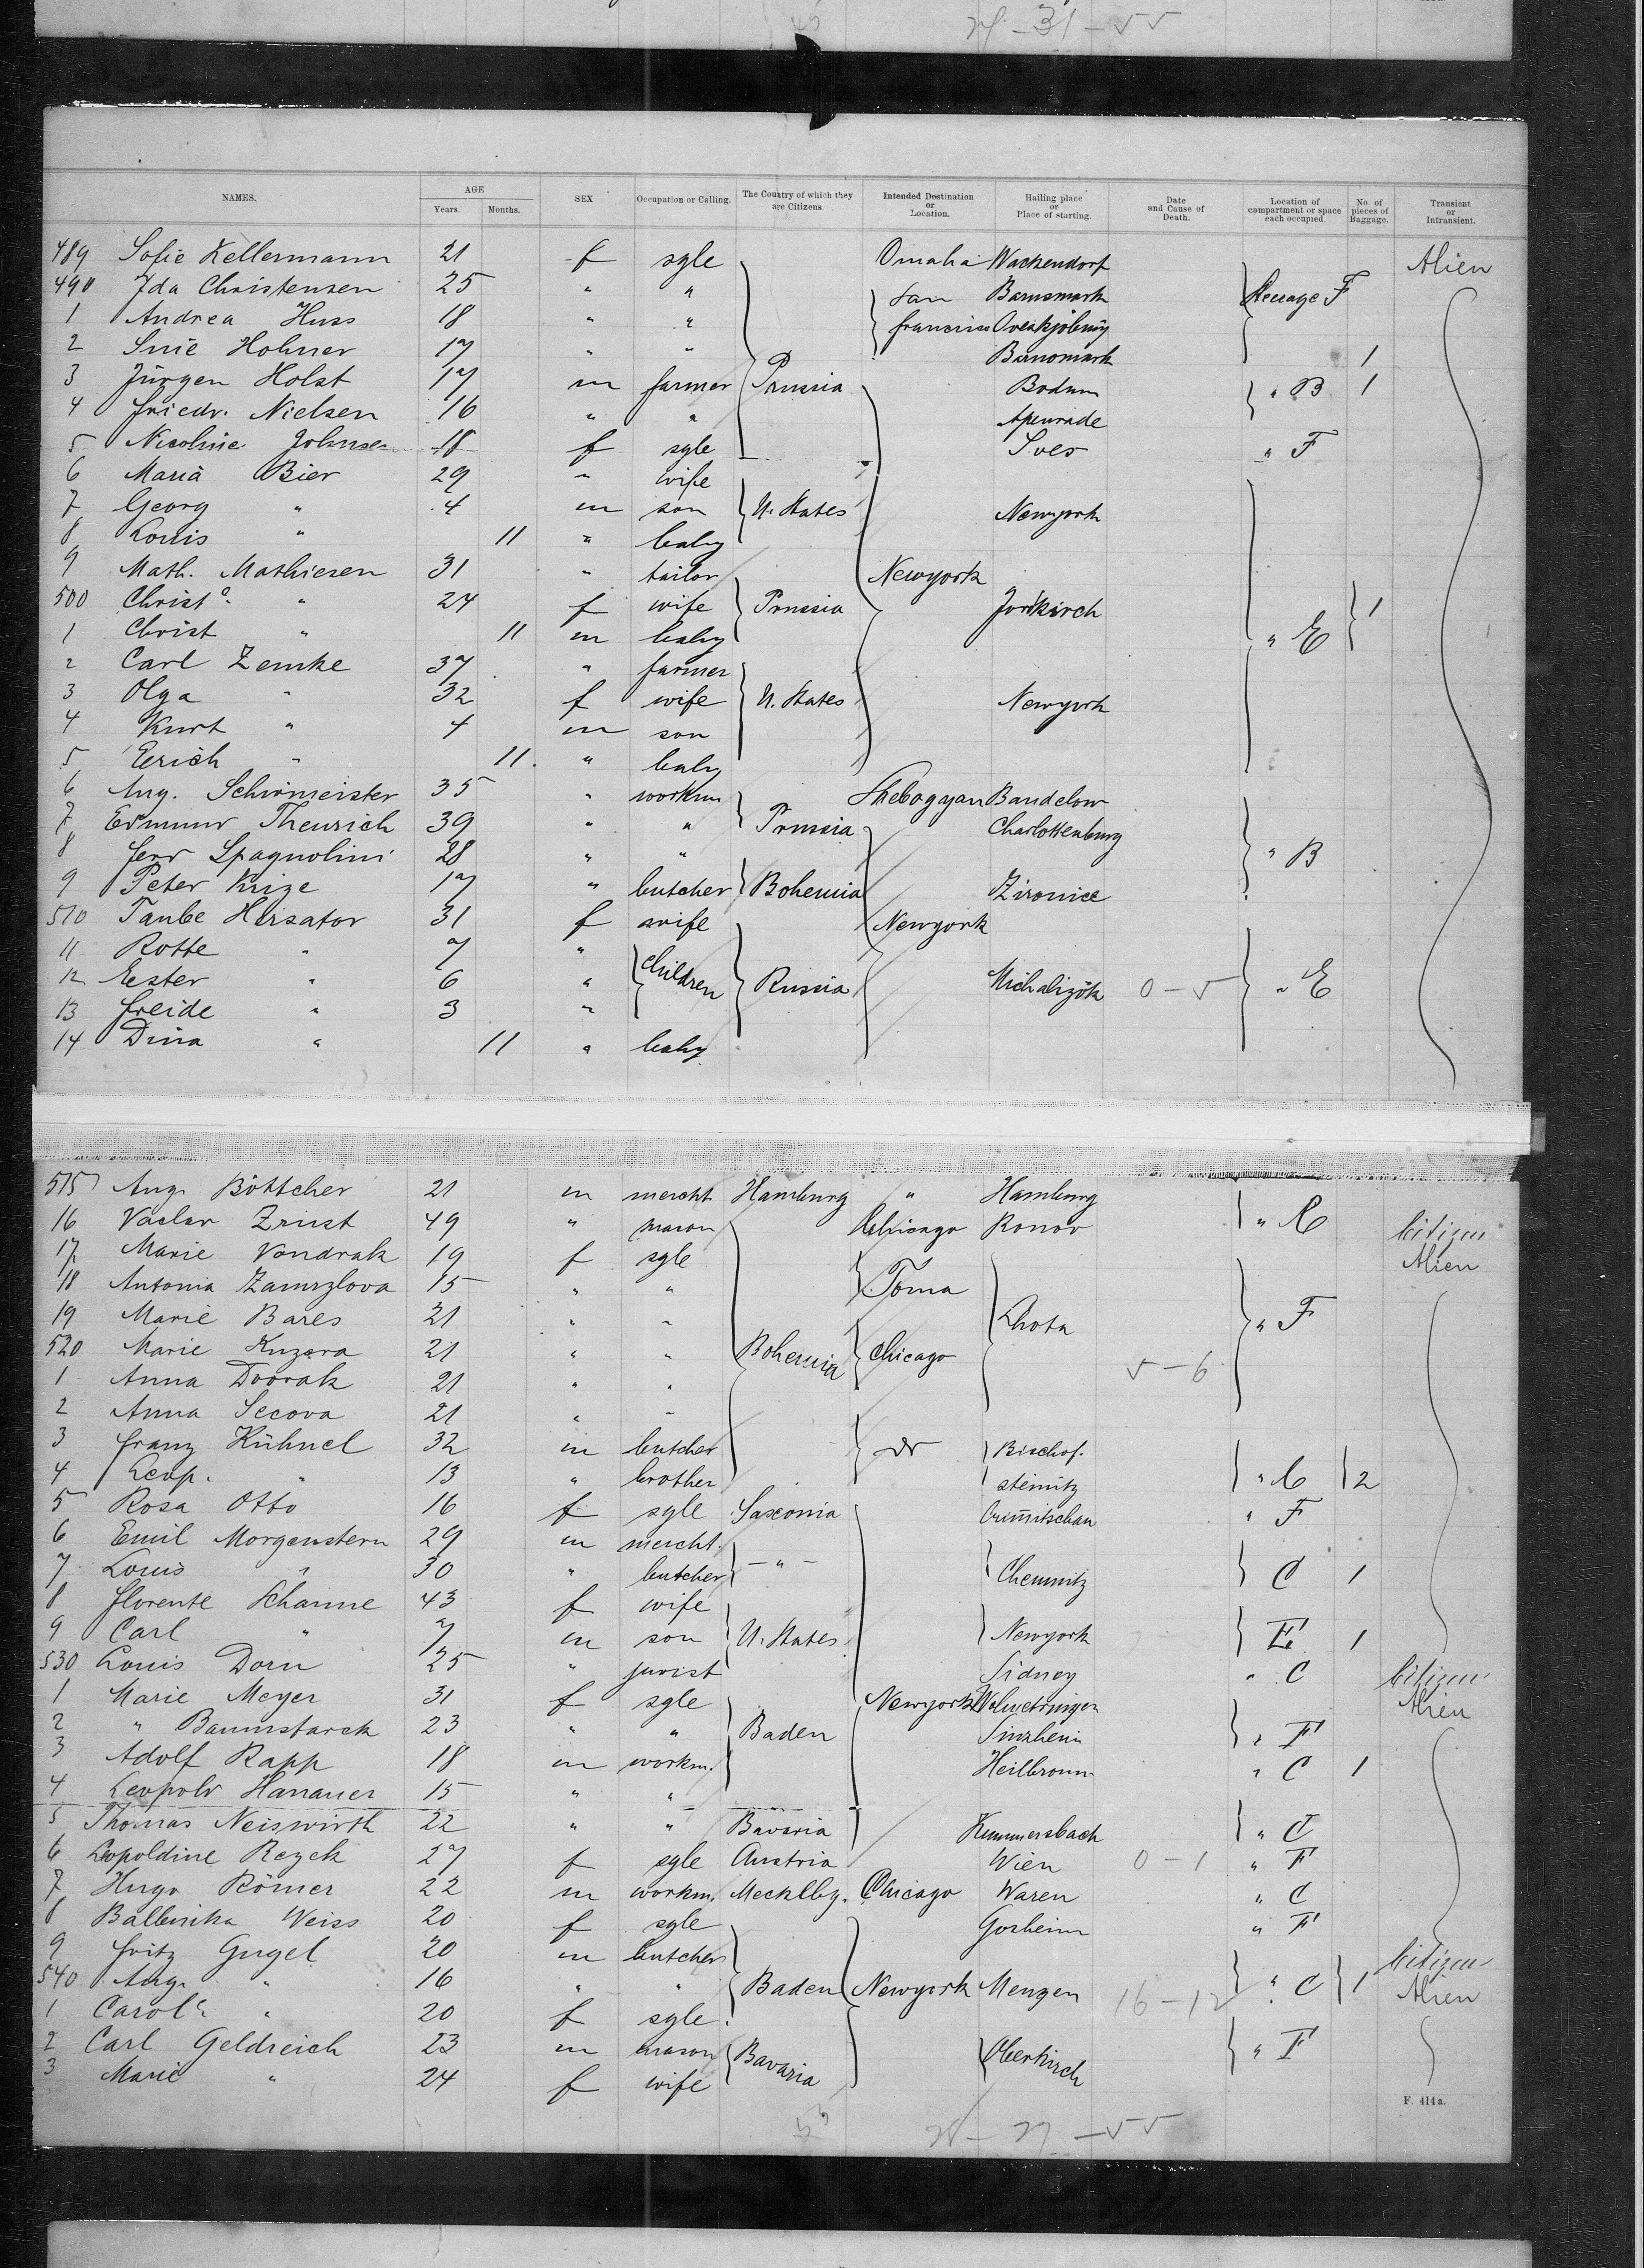 29-31-55
NAMES. AGE Years. Months. SEX Occupation or Calling. The Country of which they are Citizens. Intended Destination or Location. Hailing place or Place of starting. Date and Cause of Death. Location of compartment or space each occupied. No. of pieces of Baggage. Transient or Intransient.
489 Sofie Kellermann 21 f sgle Omaha Wackendorf Alien
490 Ida Christensen 25 " " San Steerage F
1 Andrea Huss 18 " " francisco
2 Hohner 17 " " 1
3 Jürgen Holst 17 m farmer Prussia Bodum " B 1
4 Friedr. Nielsen 16 " " Apenrade
5 Nicoline Johnsen 18 f sgle " F
6 Maria Bier 29 " wife
7 Georg " 4 m son U. States Newyork
8 Louis " 11 " baby
9 Math. Mathiesen 31 " tailor Newyork
500 Christe. " 24 f wife Prussia Jordkirch 1
1 Christ " 11 m baby " E
2 Carl Zemke 37 " farmer
3 Olga " 32 f wife U. States Newyork
4 Kurt " 4 m son
5 Erich " 11. " baby
6 Aug. Schirmeister 35 " workm Sheboygan Bandelow
7 Edmund Theurich 39 " " Prussia Charlottenburg
8 Ferd Spagnolini 28 " " " B
9 Peter Krize 17 " butcher Bohemia Zironice
510 Taube Hersator 31 f wife Newyork
11 Rotte " 7 "
12 Ester " 6 " children Russia Michalizök 0-5 " E
13 Freide " 3 "
14 Dina " 11 " baby
515 Aug. Böttcher 21 m mercht Hamburg " Hamburg
16 Vaclav Zrust 49 " mason Chicago Ronov " C Citizen
17 Marie Vondrak 19 f sgle Alien
18 Antonia Zamrzlova 15 " " Toma
19 Marie Bares 21 " " Lhota " F
520 Marie Kuzera 21 " " Bohemia Chicago 5-6
1 Anna Dvorak 21 " "
2 Anna Secova 21 " "
3 Franz Kühnel 32 m butcher do Bischof-
4 Leop. " 13 " brother steinitz " C 2
5 Rosa Otto 16 f sgle Saxonia Crimitschau " F
6 Emil Morgenstern 29 m mercht.
7 Louis " 30 " butcher - " - Chemnitz C 1
8 Florente Schanne 43 f wife
9 Carl " 7 m son U. States Newyork E 1
530 Louis Dorn 25 " jurist Sidney " C Citizen
1 Marie Meyer 31 f sgle Newyork Alien
2 " Baumstarck 23 " " Baden Sinzheim " F
3 Adolf Rapp 18 m workm. Heilbronn " C 1
4 Leopold Hanauer 15 " "
5 Thomas Neiswirth 22 " " Bavaria Kemmersbach " C
6 Leopoldine Rezek 27 f sgle Austria Wien 0-1 " F
7 Hugo Römer 22 m workm. Mecklbg. Chicago Waren " C
8 Weiss 20 f sgle Gosheim " F
9 Fritz Gugel 20 m butcher Citizen
540 Aug. " 16 " " Baden Newyork Mengen 16-12 " C 1 Alien
1 Carole. " 20 f sgle.
2 Carl Geldreich 23 m mason Bavaria Oberkirch " F
3 Marie " 24 f wife
F. 414a.